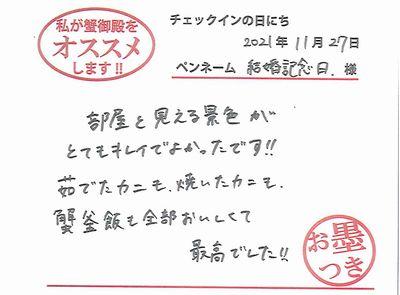 私が蟹御殿を
オススメ
します!!
チェックインの日にち
2021年 11月 27日
ペンネーム 結婚記念日. 様
部屋と見える景色が
とてもキレイでよかったです!!
茹でたカニも、焼いたカニも、
蟹釜飯も全部おいしくて
最高でした!!
お墨
つき